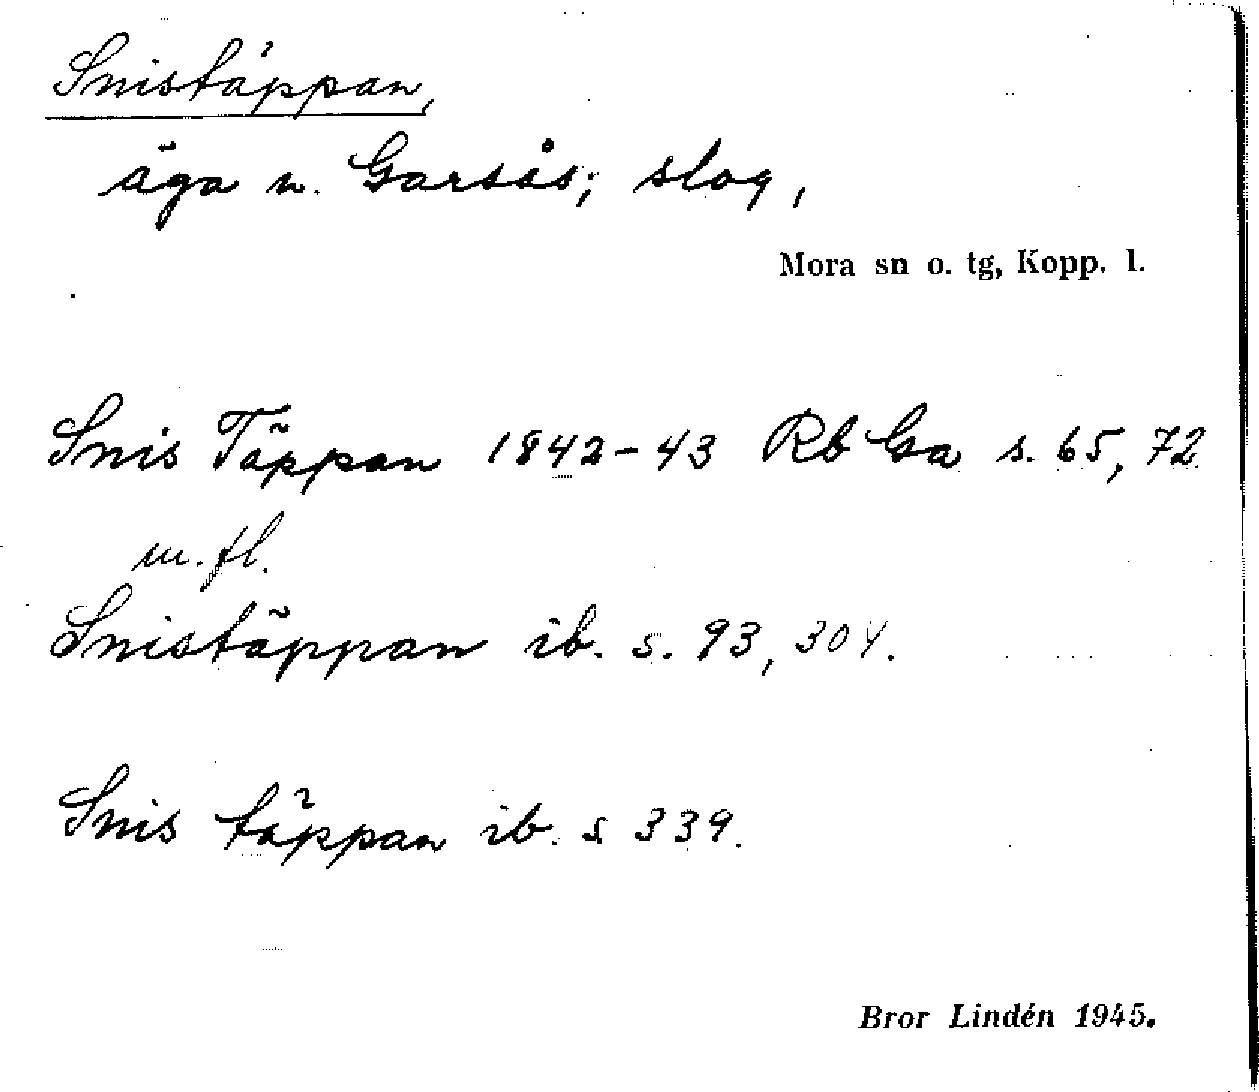 Snistäppan,
äga n. Garsås; slog,
Mora sn o. tg, Kopp. l.
Snis Täppan 1842-43 Rb Ga s. 65, 72
m. fl.
Snistäppan ib. s. 93, 304.
Snis täppan ib. s 339.
Bror Lindén 1945.